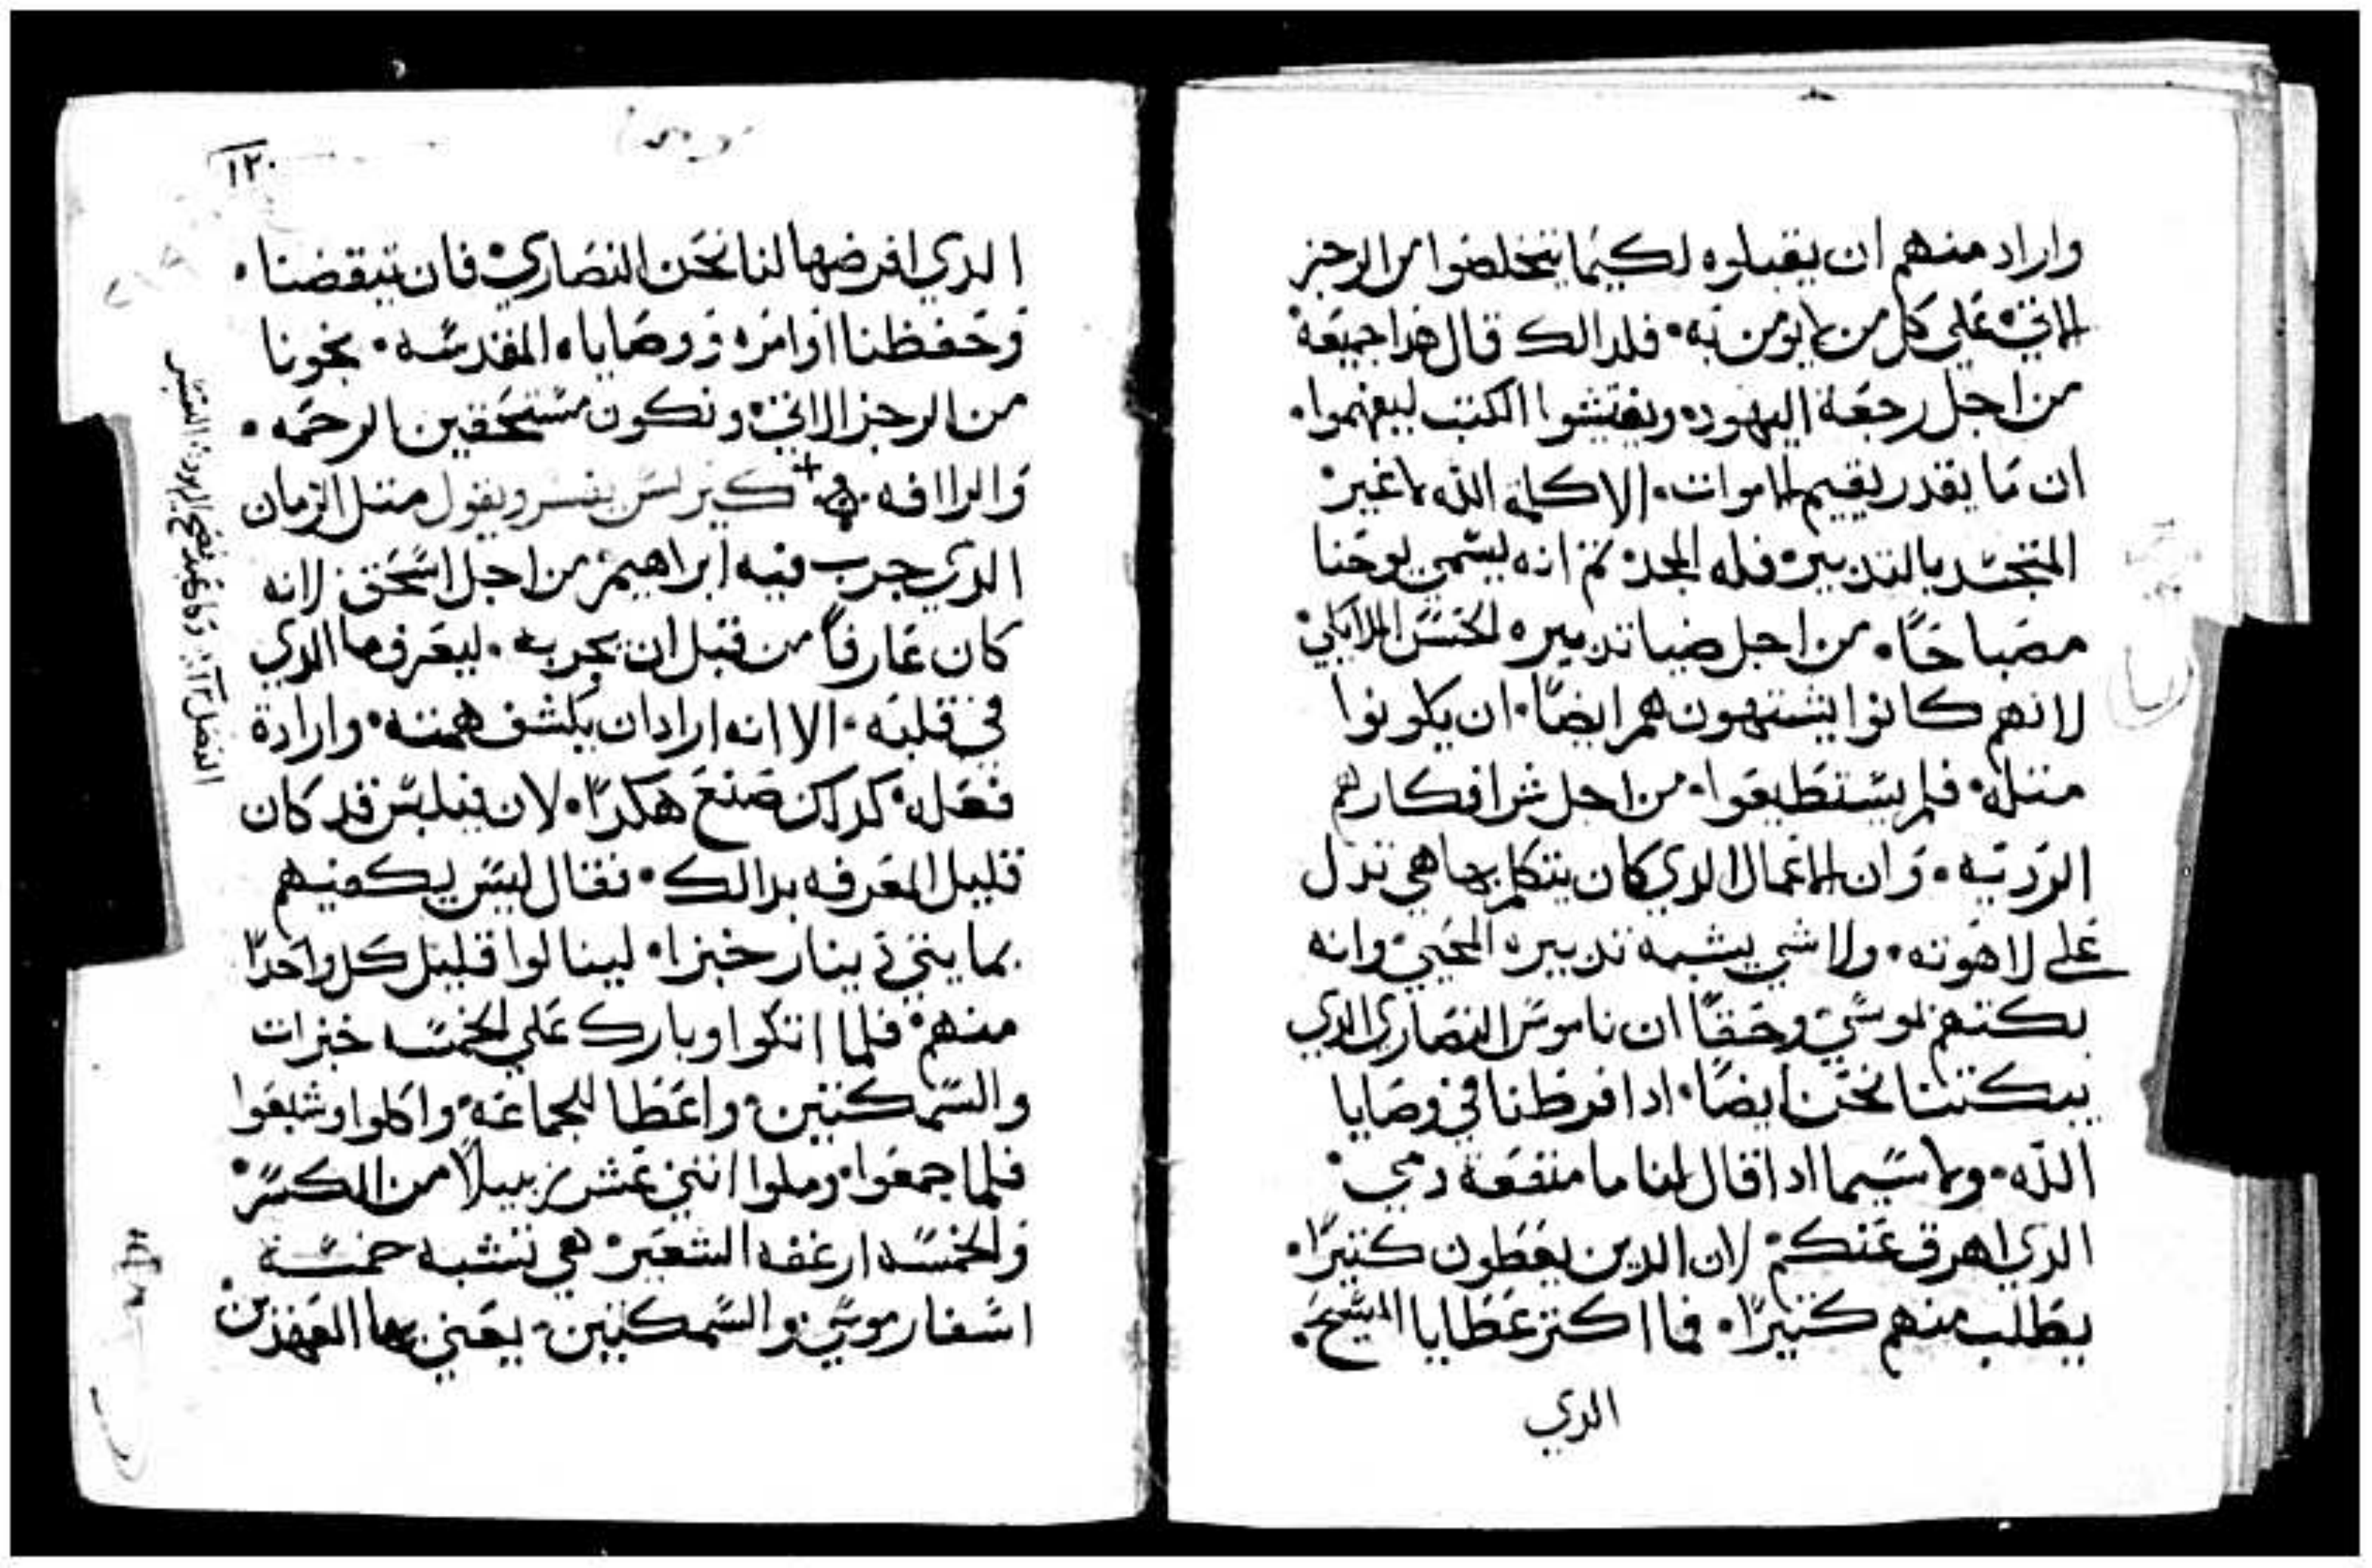 واراد منهم ان يقبلوه لكيما يتخلصوا من الرجز
الاتي علي كل من لا يومن به. فلدالك قال هدا جميعه
من اجل رجعة اليهود. ويفتشوا الكتب ليفهموا.
ان ما يقدر يقيم الاموات. الا كلمة الله لا غير
المتجسد بالتدبير فله المجد. تم انه يسمي يوحنا
مصباحًا. من اجل ضيا تدبيره الحسن الملايكي
لانهم كانوا يشتهون هم ايضًا. ان يكونوا
متله. فلم يستطيعوا. من اجل شر افكارهم
الرديه. وان الاعمال الدي كان يتكلم بها هي تدل
علي لاهوته. ولا شي يشبه تدبيره المحيي وانه
بكتهم بموسي وحقًا ان ناموس النصاري الدي
يبكتنا نحن ايضًا. ادا فرطنا في وصايا
الله. ولا سيما ادا قال لنا ما منفعة دمي
الدي اهرق عنكم. لان الدين يعطون كتيرًا.
يطلب منهم كتيرًا. فما اكتر عطايا المسيح.
الدي
١٢٠
الدي افرضها لنا نحن النصاري فان تيقضنا.
وحفظنا اوامره ووصاياه المقدسه. نجونا
من الرجز الاتي ونكون مستحقين الرحمه.
والرافه. كيرلس يفسر ويقول متل الزمان
الدي جرب فيه ابراهيم من اجل اسحق لانه
كان عارفًا من قبل ان يجربه. ليعرف ما الدي
في قلبه. الا انه اراد ان يكشف همته. وارادة
فعله. كداك صنع هكدا. لان فيلبس قد كان
قليل المعرفه بدالك. فقال ليس يكفيهم
بمايتي دينار خبزا. لينالوا قليل كل واحدًا
منهم. فلما اتكوا وبارك علي الخمسه خبزات
والسمكتين. واعطا للجماعه. واكلوا وشبعوا
فلما جمعوا. وملوا اتني عشر زبيلًا من الكسر.
والخمسه ارغفه الشعير. هي تشبه خمسة
اسفار موسي. والسمكتين. يعني بهما العهدين